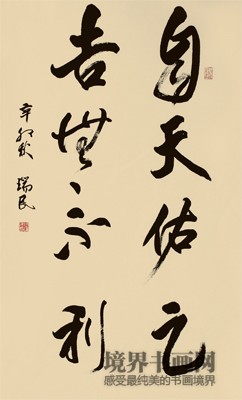 自天佑之
吉無不利
辛卯秋 瑞民
境界书画网
感受最纯美的书画境界